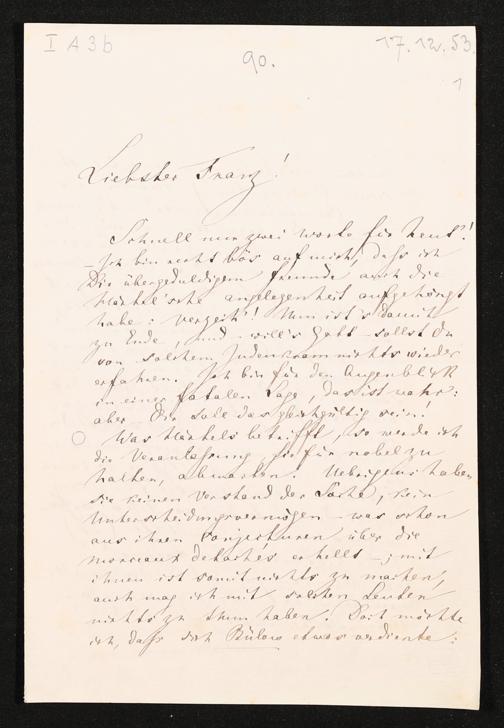 I A 3 b
90.
17. 12. 53.
1
Liebster Franz!
Schnell nur zwei Worte für heut!
– Ich bin recht bös auf mich, daß ich
Dir übergeduldigem Freunde auch die
Härtel'sche angelegenheit aufgehängt
habe: verzeih'! Nun ist's damit
zu Ende, und – will's Gott – sollst Du
von solchem Judenkram nichts wieder
erfahren. Ich bin für den Augenblick
in einer fatalen Lage, das ist wahr:
aber Dir soll das gleichgültig sein!
Was Härtels betrifft, so werde ich
die Veranlassung, sie für nobel zu
halten, abwarten. Uebrigens haben
sie keinen Verstand der Sache, kein
Unterscheidungsvermögen – was schon
aus ihren Conjecturen über die
morceaux detachés erhellt –; mit
ihnen ist somit nichts zu machen,
auch mag ich mit solchen Leuten
nichts zu thun haben. Doch möchte
ich, daß sich Bülow etwas verdiente: